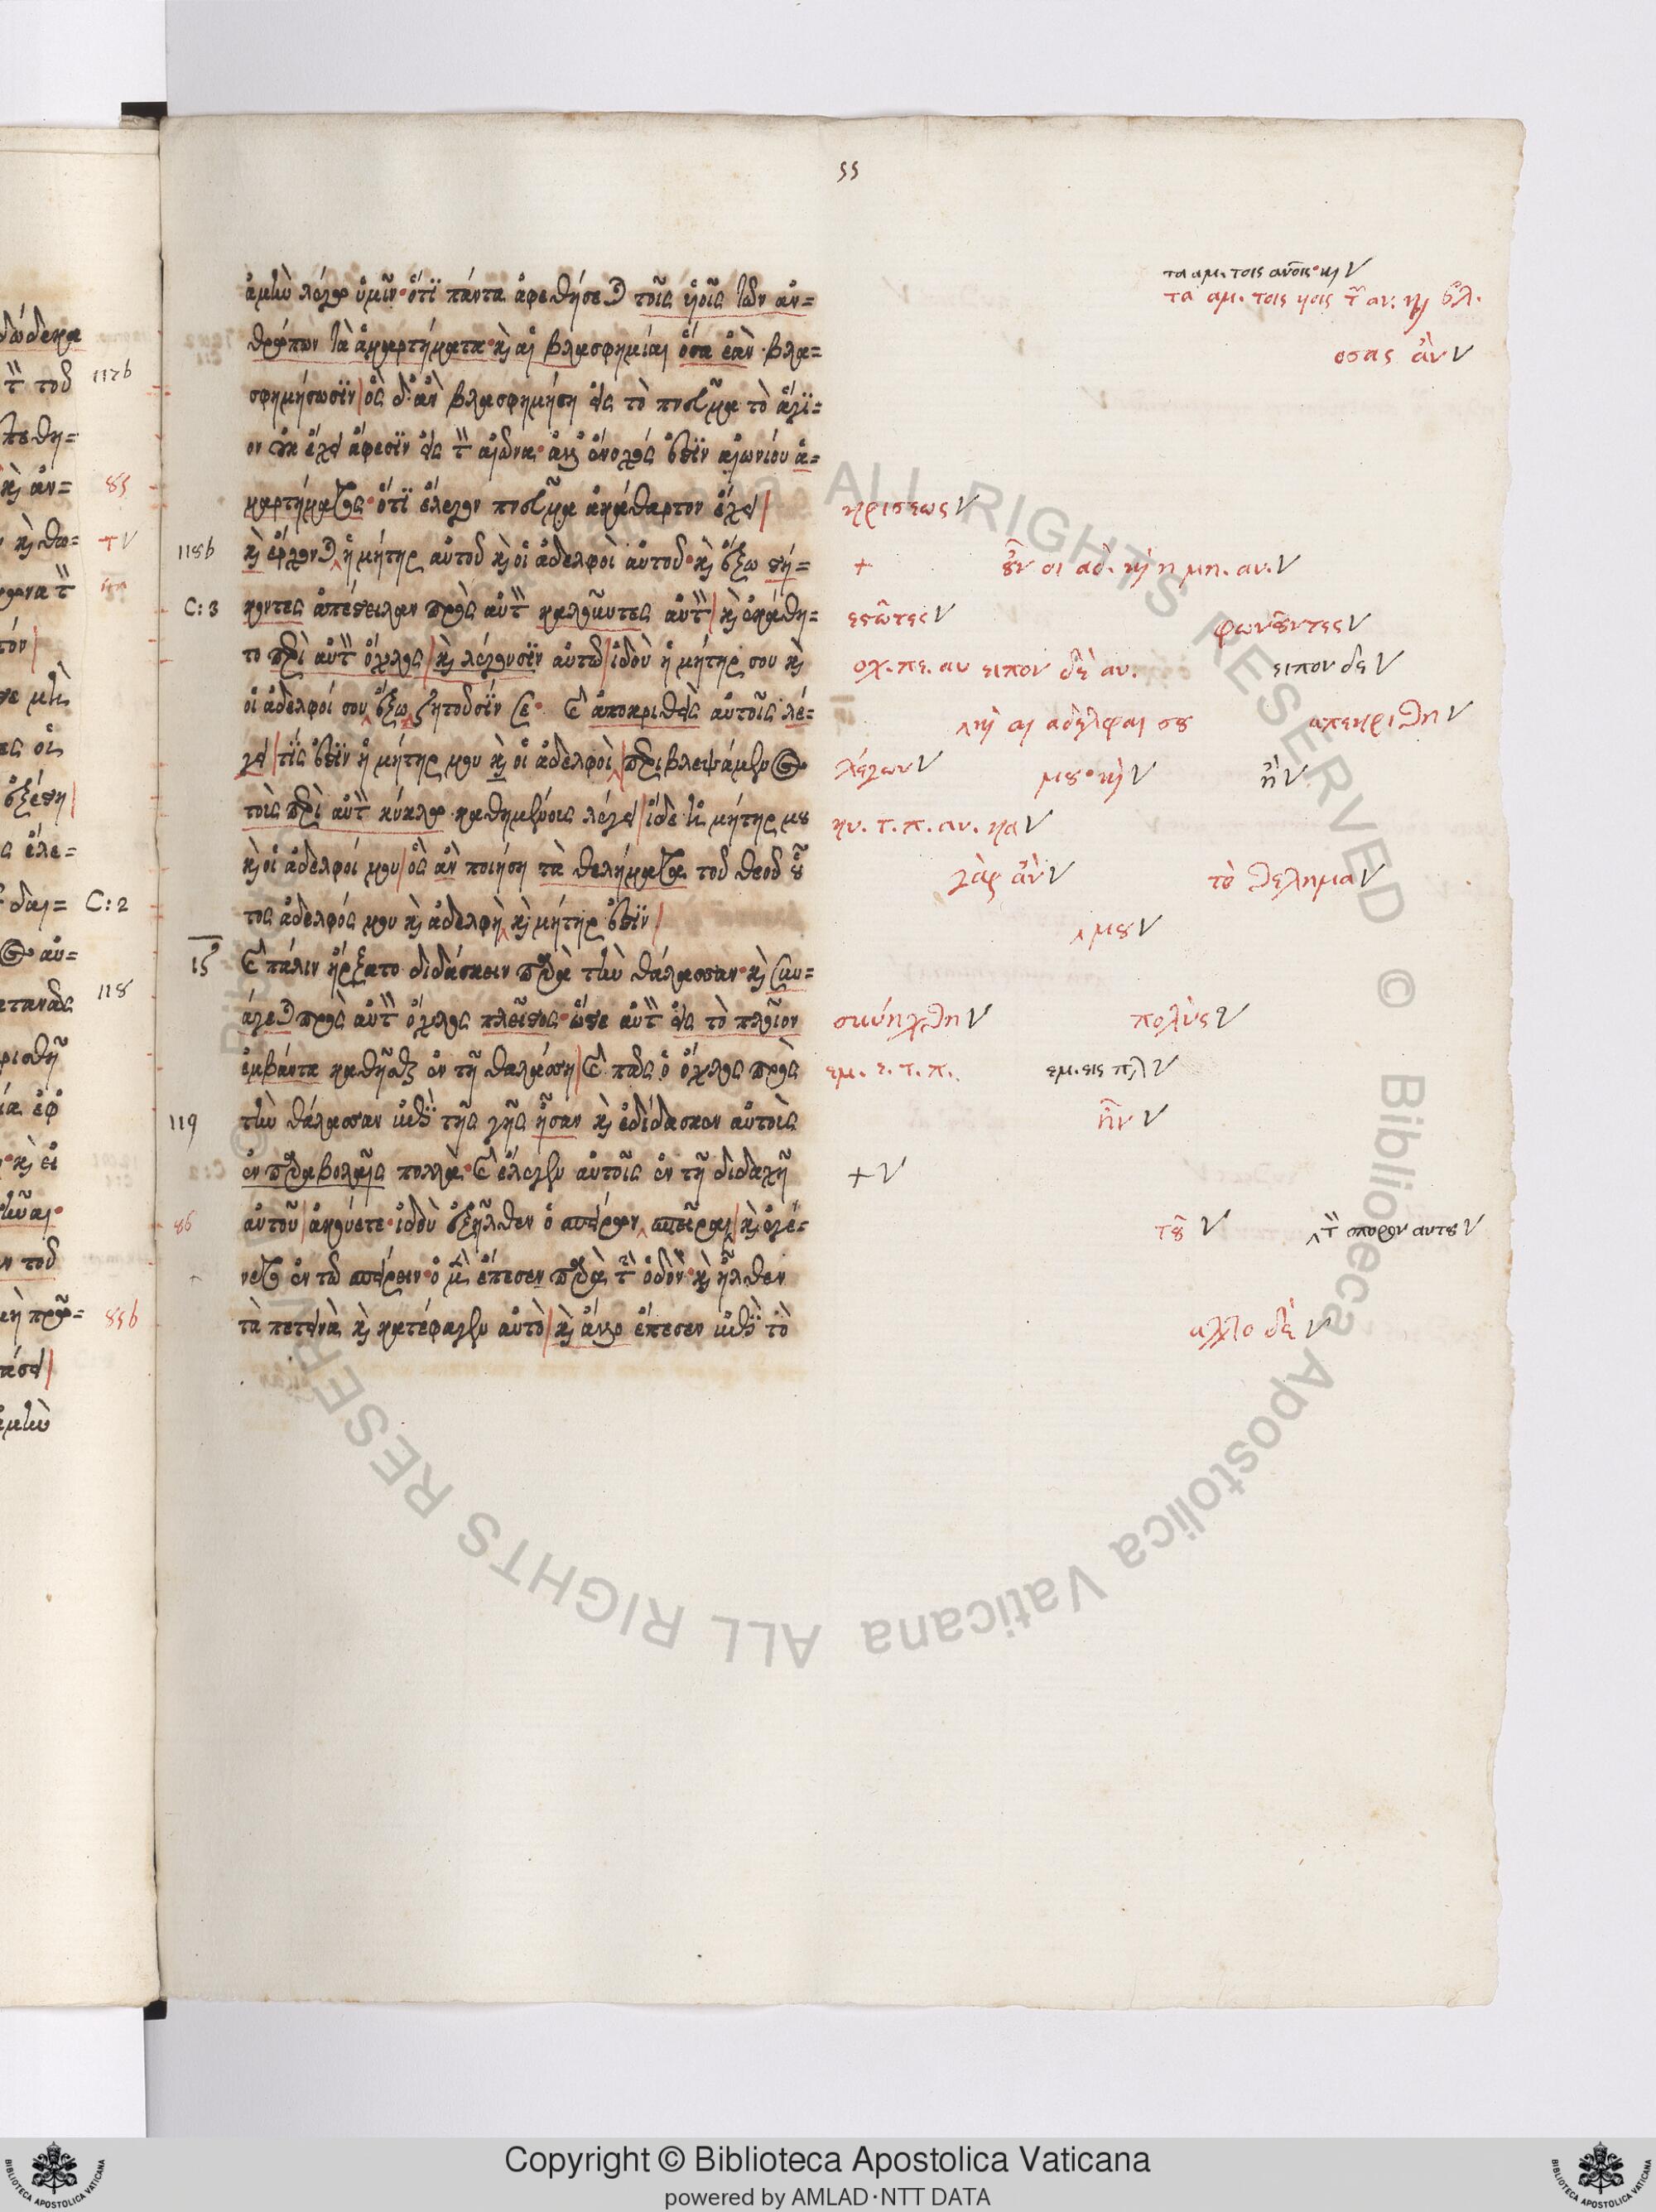 55
ἀμὴν λέγω ὑμῖν· ὅτι πάντα ἀφεθήσεται τοῖς υἱοῖς τῶν ἀν=
θρώπων τὰ ἁμαρτήματα· καὶ αἱ βλασφημίαι ὅσα ἐὰν βλα=
σφημήσωσϊν ὃς δ' ἂν βλασφημήση εἰς τὸ πνεῦμα τὸ ἅγι=
ον οὐκ ἔχει ἄφεσϊν εἰς τὸν αἰῶνα· ἀλλ' ἔνοχός ἐστϊν αἰωνίου ἁ=
μαρτήματος· ὅτϊ ἔλεγον πνεῦμα ἀκάθαρτον ἔχει
καὶ ἔρχονται ἡ μήτηρ αὐτοῦ καὶ οἱ ἀδελφοὶ αὐτοῦ· καὶ ἔξω στή=
κοντες ἀπέστειλαν πρὸς αὐτὸν καλοῦντες αὐτὸν καὶ ἐκάθη=
το περὶ αὐτὸν ὄχλος καὶ λέγουσϊν αὐτῶ ἰδοὺ ἡ μήτηρ σου καὶ
οἱ ἀδελφοί σου ἔξω ζητοῦσϊν σε· καὶ ἀποκριθεὶς αὐτοῖς λέ=
γει τίς ἐστϊν ἡ μήτηρ μου καὶ οἱ ἀδελφοὶ περιβλεψάμενος
τοὺς περὶ αὐτὸν κύκλω καθημένους λέγει ἴδε ἡ μήτηρ μου
καὶ οἱ ἀδελφοί μου ὃς ἂν ποιήση τὰ θελήματα τοῦ θεοῦ οὗ
τος ἀδελφός μου καὶ ἀδελφὴ καὶ μήτηρ ἐστϊν
καὶ πάλιν ἤρξατο διδάσκειν παρὰ τὴν θάλασσαν· καὶ συν=
άγεται πρὸς αὐτὸν ὄχλος πλεῖστος· ὥστε αὐτὸν εἰς τὸ πλοῖον
ἐμβάντα καθῆσθαι ἐν τῆ θαλάσση καὶ πᾶς ὁ ὄχλος πρὸς
τὴν θάλασσαν ἐπὶ τῆς γῆς ἦσαν καὶ ἐδίδασκεν αὐτοὺς
ἐν παραβολαῖς πολλὰ· καὶ ἔλεγεν αὐτοῖς ἐν τῆ διδαχῆ
αὐτοῦ ἀκούετε· ἰδοὺ ἐξῆλθεν ὁ σπείρων σπεῖραι καὶ ἐγέ=
νετο ἐν τῶ σπείρειν· ὁ μὲν ἔπεσεν παρὰ τὴν ὁδὸν· καὶ ἦλθεν
τὰ πετεινὰ καὶ κατέφαγεν αὐτὸ καὶ ἄλλο ἔπεσεν ἐπὶ τὸ
118b
C: 3
ις
119
86
τα αμ. τοις ανοις· και V
τα αμ. τοις υοις τῶν αν: και βλ.
οσας ἂν V
κρισεως V
+ οὖν οι αδ. και η μη. αυ. V
εστῶτες V φωνοῦντες V
οχ. πε. αυ ειπον δὲ αυ. ειπον δε V
καὶ αι αδελφαι σου απεκριθη V
λέγων V μου· καὶ V ἢ V
κυ. τ. π. αυ. κα V
γὰρ ἂν V τὸ θελημα V
μου V
συνήχθη V πολὺς V
εμ. ε. τ. π. εμ. εις πλ V
ἦν V
+ V
τοῦ V τὸν σπορον αυτου V
αλλο δὲ V
δώδεκα
112b
85
C: 2
118
85b
ALL RIGHTS RESERVED © Biblioteca Apostolica Vaticana ALL RIGHTS RESERVED ©
Copyright © Biblioteca Apostolica Vaticana
powered by AMLAD·NTT DATA